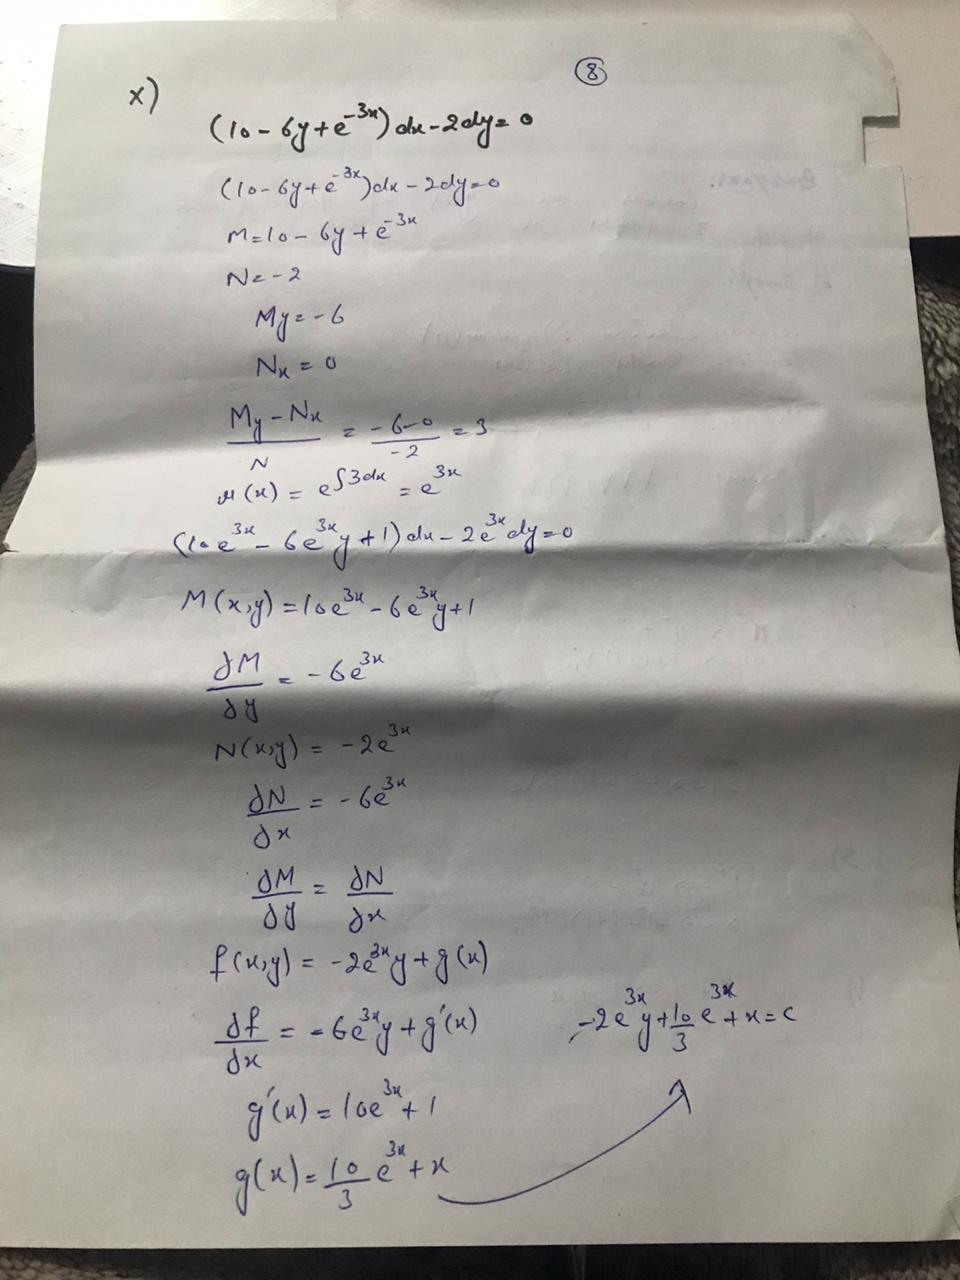 8
x)
(10 - 6y + e^-3x) dx - 2dy = 0
(10 - 6y + e^-3x) dx - 2dy = 0
M = 10 - 6y + e^-3x
N = -2
My = -6
Nx = 0
(My - Nx)/N = (-6-0)/-2 = 3
μ(x) = e^∫3dx = e^3x
(10e^3x - 6e^3x y + 1) dx - 2e^3x dy = 0
M(x,y) = 10e^3x - 6e^3x y + 1
∂M/∂y = -6e^3x
N(x,y) = -2e^3x
∂N/∂x = -6e^3x
∂M/∂y = ∂N/∂x
f(x,y) = -2e^3x y + g(x)
∂f/∂x = -6e^3x y + g'(x)
g'(x) = 10e^3x + 1
g(x) = 10/3 e^3x + x
-2e^3x y + 10/3 e^3x + x = c